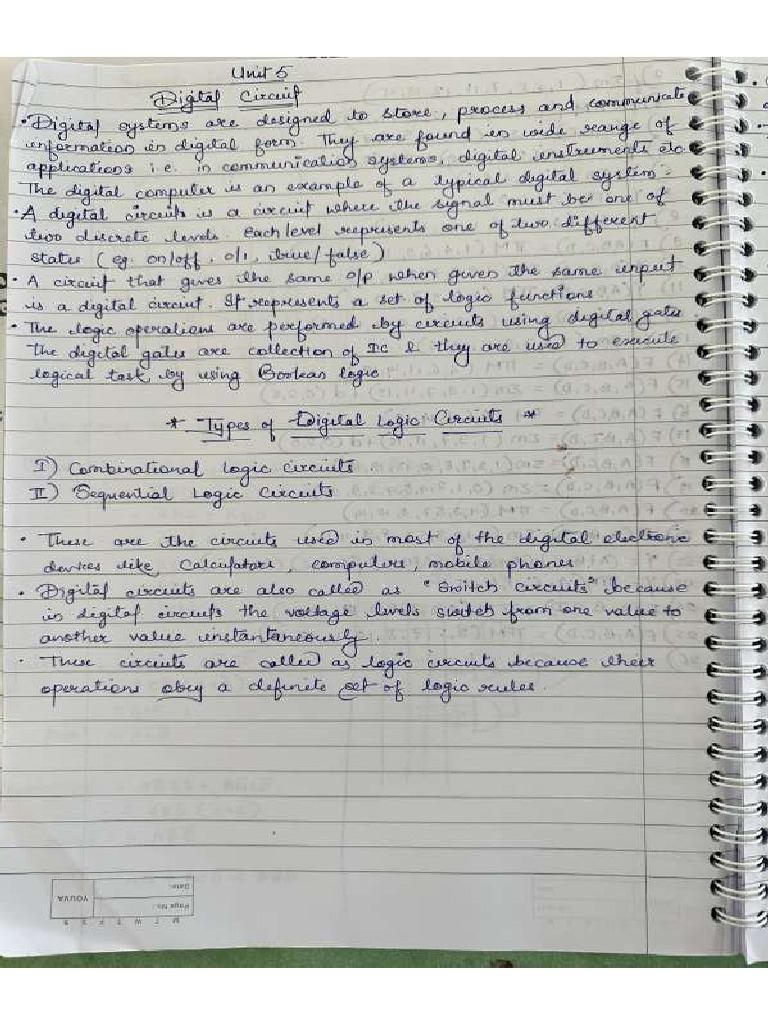 Unit 5
Digital Circuit
• Digital systems are designed to store, process and communicate
information in digital form. They are found in wide range of
applications i.e. in communication systems, digital instruments etc.
The digital computer is an example of a typical digital system.
• A digital circuits is a circuit where the signal must be one of
two discrete levels. Each level represents one of two different
states (eg. on/off, 0/1, true/false)
• A circuit that gives the same o/p when given the same input
is a digital circuit. It represents a set of logic functions.
• The logic operations are performed by circuits using digital gates.
The digital gates are collection of IC & they are used to execute
logical task by using Boolean logic.
* Types of Digital Logic Circuits *
I) Combinational Logic circuits
II) Sequential Logic Circuits
• These are the circuits used in most of the digital electronic
devices like calculators, computers, mobile phones
• Digital circuits are also called as "Switch circuits" because
in digital circuits the voltage levels switch from one value to
another value instantaneously.
• These circuits are called as logic circuits because their
operations obey a definite set of logic rules.
YOUVA
Date:
Page No.:
M T W T F S S